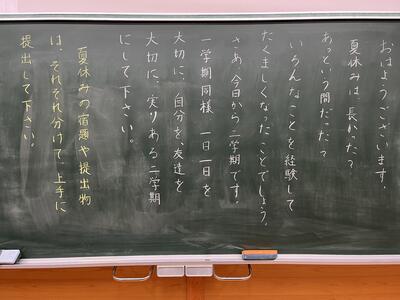 おはようございます。
夏休みは長かった？
あっという間だった？
いろんなことを経験して
たくましくなったことでしょう。
さあ、今日から二学期です。
一学期同様、一日一日を
大切に、自分を、友達を
大切に、実りある二学期
にして下さい。
夏休みの宿題や提出物
は、それぞれ分けて上手に
提出して下さい。